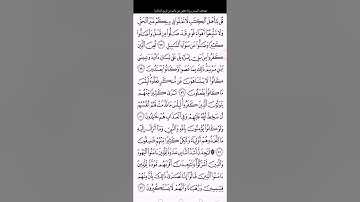 قُلْ يَٰٓأَهْلَ ٱلْكِتَٰبِ لَا تَغْلُوا۟ فِى دِينِكُمْ غَيْرَ ٱلْحَقِّ
وَلَا تَتَّبِعُوٓا۟ أَهْوَآءَ قَوْمٍ قَدْ ضَلُّوا۟ مِن قَبْلُ وَأَضَلُّوا۟
كَثِيرًا وَضَلُّوا۟ عَن سَوَآءِ ٱلسَّبِيلِ ٧٧ لُعِنَ ٱلَّذِينَ
كَفَرُوا۟ مِنۢ بَنِىٓ إِسْرَٰٓءِيلَ عَلَىٰ لِسَانِ دَاوُۥدَ وَعِيسَى
ٱبْنِ مَرْيَمَ ذَٰلِكَ بِمَا عَصَوا۟ وَّكَانُوا۟ يَعْتَدُونَ ٧٨
كَانُوا۟ لَا يَتَنَاهَوْنَ عَن مُّنكَرٍ فَعَلُوهُ لَبِئْسَ
مَا كَانُوا۟ يَفْعَلُونَ ٧٩ تَرَىٰ كَثِيرًا مِّنْهُمْ
يَتَوَلَّوْنَ ٱلَّذِينَ كَفَرُوا۟ لَبِئْسَ مَا قَدَّمَتْ لَهُمْ أَنفُسُهُمْ
أَن سَخِطَ ٱللَّهُ عَلَيْهِمْ وَفِى ٱلْعَذَابِ هُمْ خَٰلِدُونَ ٨٠
وَلَوْ كَانُوا۟ يُؤْمِنُونَ بِٱللَّهِ وَٱلنَّبِىِّ وَمَآ أُنزِلَ إِلَيْهِ
مَا ٱتَّخَذُوهُمْ أَوْلِيَآءَ وَلَٰكِنَّ كَثِيرًا مِّنْهُمْ فَٰسِقُونَ
٨١ ۞ لَتَجِدَنَّ أَشَدَّ ٱلنَّاسِ عَدَٰوَةً لِّلَّذِينَ ءَامَنُوا۟ ٱلْيَهُودَ
وَٱلَّذِينَ أَشْرَكُوا۟ وَلَتَجِدَنَّ أَقْرَبَهُم مَّوَدَّةً لِّلَّذِينَ
ءَامَنُوا۟ ٱلَّذِينَ قَالُوٓا۟ إِنَّا نَصَٰرَىٰ ذَٰلِكَ بِأَنَّ مِنْهُمْ
قِسِّيسِينَ وَرُهْبَانًا وَأَنَّهُمْ لَا يَسْتَكْبِرُونَ ٨٢